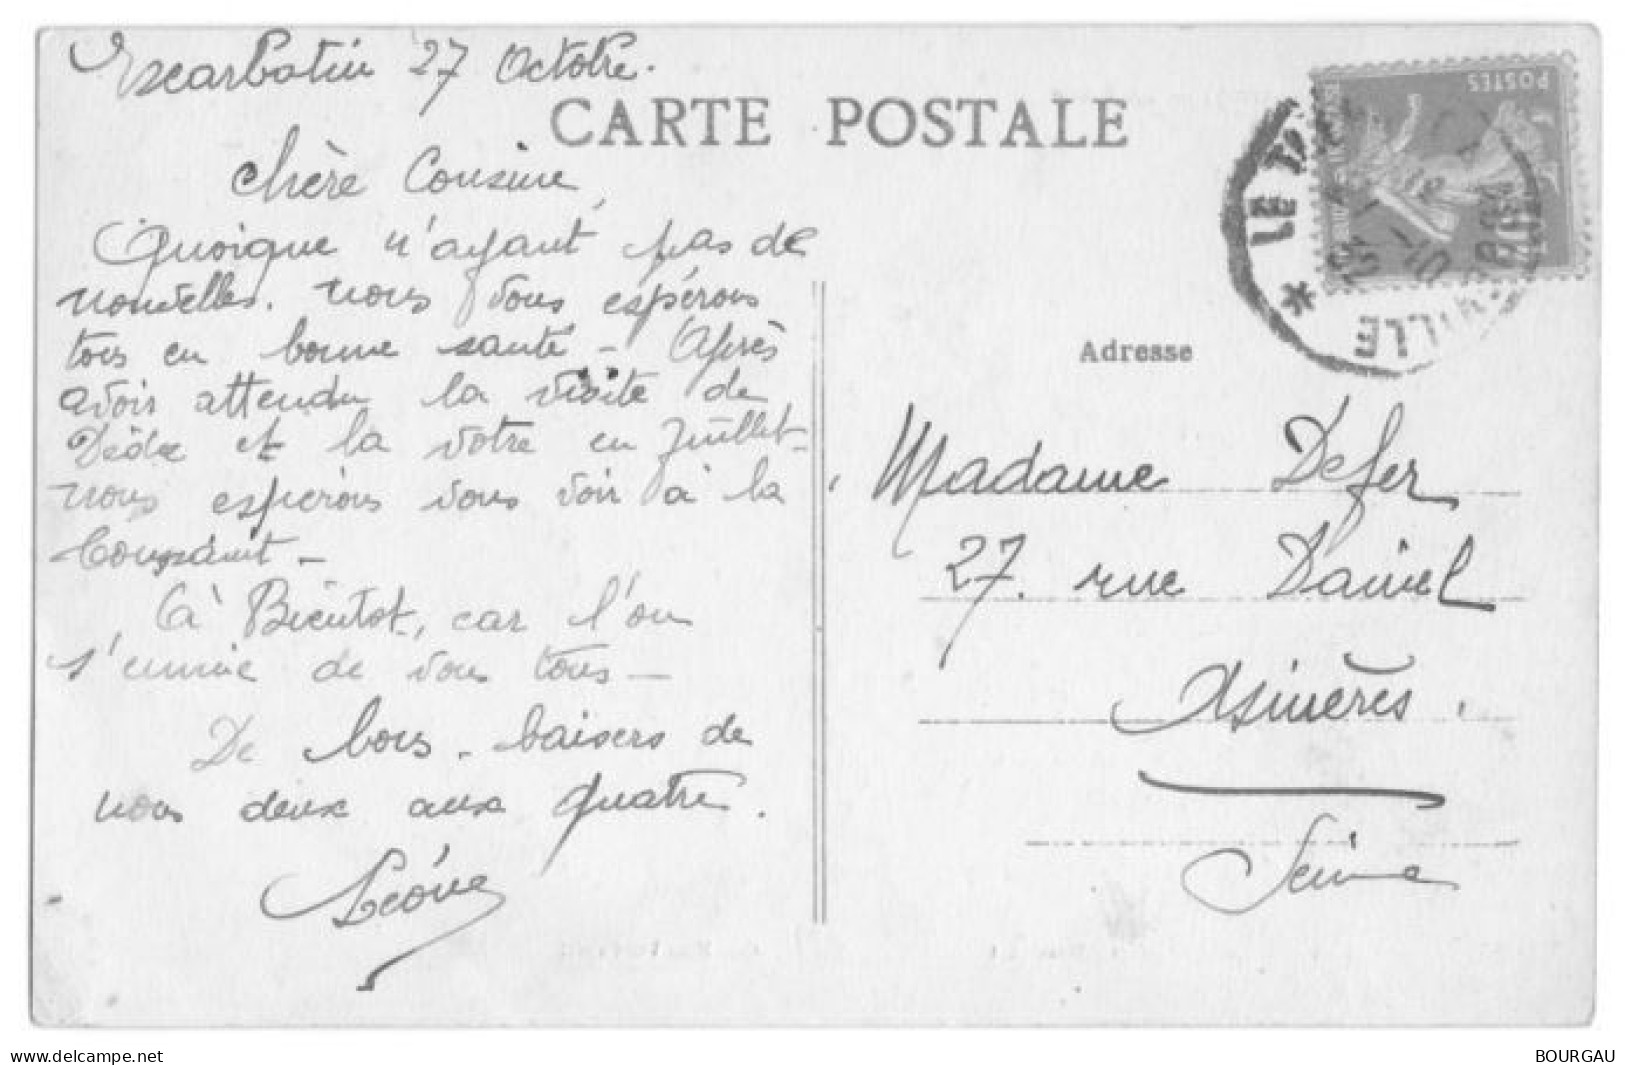 Escarbotin 27 Octobre.
CARTE POSTALE
POSTES
LE TR
ILLE
chère Cousine,
Quoique n'ayant pas de
nouvelles. nous vous espérons
tous en bonne santé - Après
avoir attendu la visite de
Dédée et la votre en Juillet -
nous esperons vous voir à la
Toussaint -
à Bientot, car l'on
s'ennuie de vous tous -
De bons baisers de
nous deux aux quatre.
Léone
Adresse
Madame Defer
27. rue Daniel
Asinères.
Seine
www.delcampe.net
BOURGAU